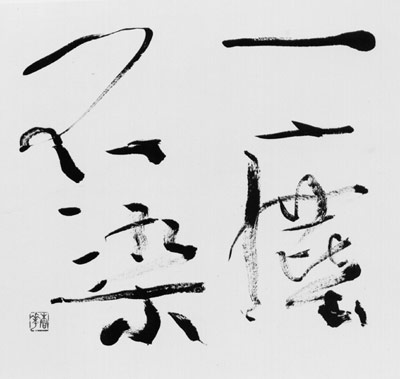 一塵
不染